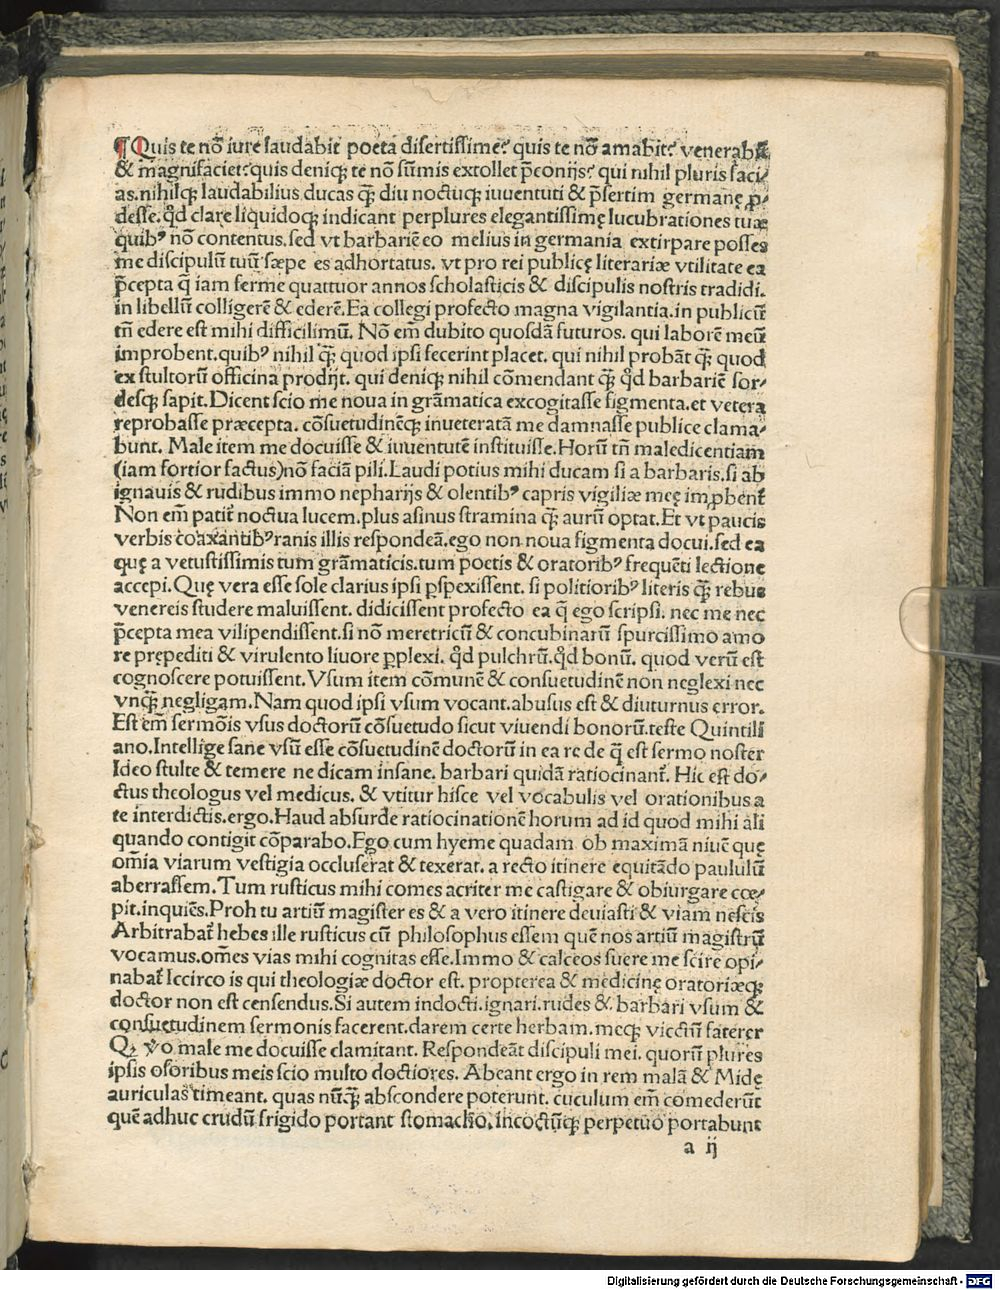 ¶ Quis te nō iure laudabit̃ poeta disertissime? quis te nō amabit? venerabit̃
& magnifaciet? quis deniqꝫ te nō sūmis extollet p̄conijs? qui nihil pluris faci
as. nihilqꝫ laudabilius ducas qꝫ̄ diu noctuqꝫ iuuentuti & p̄sertim germanę ꝓ⸗
desse. qd̄ clare liquidoqꝫ indicant perplures elegantissimę lucubrationes tuæ
quibꝰ nō contentus. sed vt barbariē eo melius in germania extirpare posses
me discipulū tuū sæpe es adhortatus. vt pro rei publicę literariæ vtilitate ea
p̄cepta q̄ iam ferme quattuor annos scholasticis & discipulis nostris tradidi.
in libellū colligerē & ederē. Ea collegi profecto magna vigilantia. in publicū
tn̄ edere est mihi difficilimū. Nō em̄ dubito quosdā futuros. qui laborē meū
improbent. quibꝰ nihil qꝫ̄ quod ipsi fecerint placet. qui nihil probāt qꝫ̄ quod
ex stultorū officina prodijt. qui deniqꝫ nihil cōmendant qꝫ̄ qd̄ barbariē sor⸗
desqꝫ sapit. Dicent scio me noua in grāmatica excogitasse figmenta. et vetera
reprobasse præcepta. cōsuetudinēqꝫ inueteratā me damnasse publice clama⸗
bunt. Male item me docuisse & iuuentutē instituisse. Horū tn̄ maledicentiam
(iam fortior factus) nō faciā pili. Laudi potius mihi ducam si a barbaris. si ab
ignauis & rudibus immo nepharijs & olentibꝰ capris vigiliæ meę imꝓbent̃
Non em̄ patit̃ noctua lucem. plus asinus stramina qꝫ̄ aurū optat. Et vt paucis
verbis coaxantibꝰ ranis illis respondeā. ego non noua figmenta docui. sed ea
quę a vetustissimis tum grāmaticis. tum poetis & oratoribꝰ frequēti lectione
accepi. Quę vera esse sole clarius ipsi ꝑspexissent. si politioribꝰ literis qꝫ̄ rebus
venereis studere maluissent. didicissent profecto ea q̄ ego scripsi. nec me nec
p̄cepta mea vilipendissent. si nō meretricū & concubinarū spurcissimo amo
re prępediti & virulento liuore ꝑplexi. qd̄ pulchrū. qd̄ bonū. quod verū est
cognoscere potuissent. Vsum item cōmunē & consuetudinē non neglexi nec
vnqꝫ̄ negligam. Nam quod ipsi vsum vocant. abusus est & diuturnus error.
Est em̄ sermōis vsus doctorū cōsuetudo sicut viuendi bonorū. teste Quintili
ano. Intellige sane vsū esse cōsuetudinē doctorū in ea re de q̄ est sermo noster
Ideo stulte & temere ne dicam insane. barbari quidā ratiocinant̃. Hic est do⸗
ctus theologus vel medicus. & vtitur hisce vel vocabulis vel orationibus a
te interdictis. ergo. Haud absurde ratiocinationē horum ad id quod mihi ali
quando contigit cōparabo. Ego cum hyeme quadam ob maximā niuē quę
om̄ia viarum vestigia occluserat & texerat. a recto itinere equitādo paululū
aberrassem. Tum rusticus mihi comes acriter me castigare & obiurgare cœ⸗
pit. inquiēs. Proh tu artiū magister es & a vero itinere deuiasti & viam nescis
Arbitrabat̃ hebes ille rusticus cū philosophus essem quē nos artiū magistrū
vocamus. om̄es vias mihi cognitas esse. Immo & calceos suere me scire opi⸗
nabat̃ Iccirco is qui theologiæ doctor est. propterea & medicinę oratoriæqꝫ
doctor non est censendus. Si autem indocti. ignari. rudes & barbari vsum &
consuetudinem sermonis facerent. darem certe herbam. meqꝫ victū faterer
Qꝫ vo̊ male me docuisse clamitant. Respondeāt discipuli mei. quorū plures
ipsis osoribus meis scio multo doctiores. Abeant ergo in rem malā & Midę
auriculas timeant. quas nūqꝫ̄ abscondere poterunt. cuculum em̄ comederūt
quē adhuc crudū frigido portant stomacho. incoctūqꝫ perpetuo portabunt
a ij
Digitalisierung gefördert durch die Deutsche Forschungsgemeinschaft - DFG